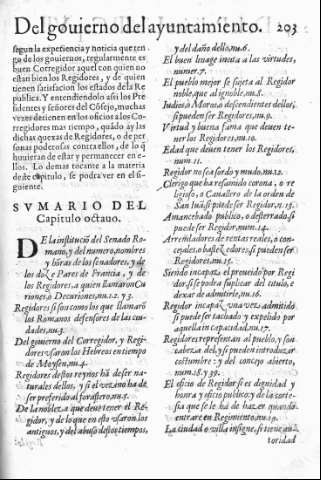 Del gouierno del ayuntamiento. 203
segun la experiencia y noticia que ten
go de los gouiernos, regularmente es
buen Corregidor aquel con quien no
estan bien los Regidores, y de quien
tienen satisfacion los estados de la Re
publica. Y entendiendolo assi los Pre
sidentes y señores del Cõsejo, muchas
vezes detienen en los oficios a los Co-
rregidores mas tiempo, quãdo ay las
dichas quexas de Regidores, o de per
sonas poderosas contra ellos, de lo q̃
huuieran de estar y permanecer en e-
llos. Lo demas tocante a la materia
deste capitulo, se podra ver en el si-
guiente.
SVMARIO DEL
Capitulo octauo.
DE la instituciõ del Senado Ro-
mano, y del numero, nombres
y libras de los senadores, y de
los dóze Pares de Francia, y de
los Regidores, a quien llamaron Cu
riones, o Decuriones, nu. 1. 2. y 3.
Regidores si son como los que llamarõ
los Romanos defensores de las ciu-
dades, nu. 3.
Del gouierno del Corregidor, y Regi-
dores vsaron los Hebreos en tiempo
de Moysen, nu. 4.
Regidores destos reynos hã de ser na-
turales dellos, y si el vezino ha de
ser preferido al forastero, nu. 5.
De la nobleza que deuẽ tener los Re-
gidores, y de lo que en esto vsaron los
antiguos, y del abuso destos tiempos,
y del daño dello, nu. 6.
El buen linage incita a las virtudes,
numer. 7.
El pueblo mejor se sujeta al Regidor
noble, que al ignoble, nu. 8.
Iudios, o Moros, o descendientes dellos,
si pueden ser Regidores, nu. 9.
Virtud y buena fama que deuen te-
ner los Regidores, nu. 10.
Edad que deuen tener los Regidores,
num. 11.
Regidor no sea sordo y mudo, nu. 12.
Clerigo que ha resumido corona, o re
ligioso, o Cauallero de la orden de
San Iuã, si puede ser Regidor, n. 13.
Amancebado publico, o desterrado, si
puede ser Regidor, num. 14.
Arrendadores de rentas reales, o con-
cejales, o sus fiadores, si pueden ser
Regidores, nu. 15.
Siendo incapaz el proueido por Regi
dor, si se podra suplicar del titulo, o
dexar de admitirle, nu. 16.
Regidor incapaz vna vez admitido
si puede ser tachado y expelido por
aquella incapacidad, nu. 17.
Regidores representan al pueblo, y son
cabeça del, y si pueden introduzir
costumbre: y del concejo abierto,
num. 18. y 39.
El oficio de Regidor si es dignidad y
honra y oficio publico: y de la corte-
sia que se le há de hazer quando
entrare en Regimiento, nu. 19.
La ciudad o villa insigne, si tiene au-
toridad